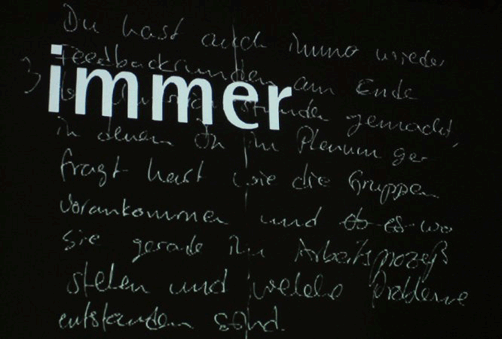 Du hast auch immer wieder
Feedbackrunden am Ende
immer
der Unterrichtsstunden gemacht,
in denen Du im Plenum ge-
fragt hast wie die Gruppen
vorankommen und ob es wo
sie gerade im Arbeitsprozeß
stehen und welche Probleme
entstanden sind.